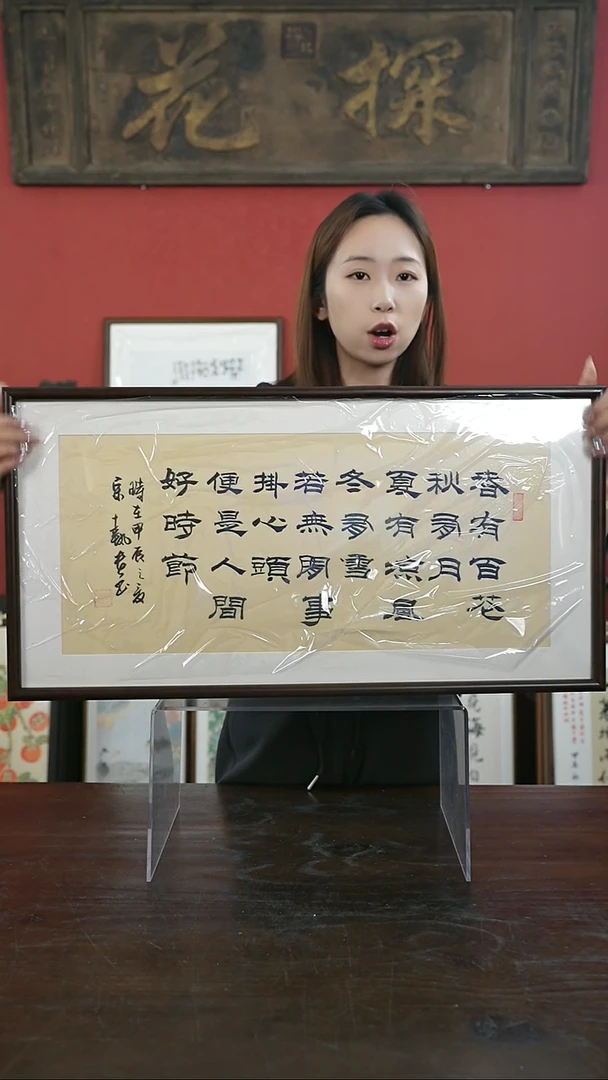 探花
春有百花
秋有月
夏有凉風
冬有雪
若無閑事
掛心頭
便是人間
好時節
時在甲辰之夏